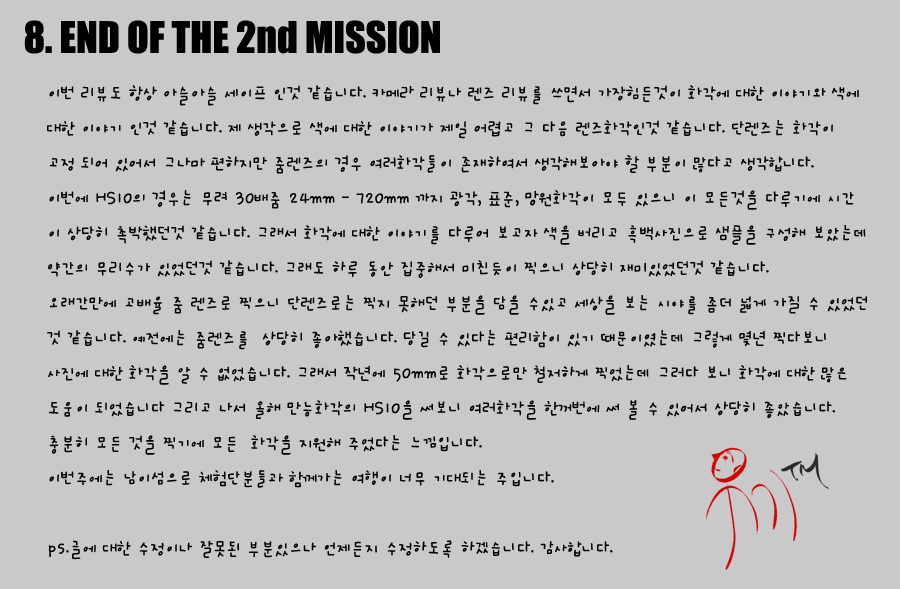 8. END OF THE 2nd MISSION
이번 리뷰도 항상 아슬아슬 세이프 인것 같습니다. 카메라 리뷰나 렌즈 리뷰를 쓰면서 가장힘든것이 화각에 대한 이야기와 색에
대한 이야기 인것 같습니다. 제 생각으로 색에 대한 이야기가 제일 어렵고 그 다음 렌즈화각인것 같습니다. 단렌즈는 화각이
고정 되어 있어서 그나마 편하지만 줌렌즈의 경우 여러화각들이 존재하여서 생각해보아야 할 부분이 많다고 생각합니다.
이번에 HS10의 경우는 무려 30배줌 24mm - 720mm 까지 광각, 표준, 망원화각이 모두 있으니 이 모든것을 다루기에 시간
이 상당히 촉박했던것 같습니다. 그래서 화각에 대한 이야기를 다루어 보고자 색을 버리고 흑백사진으로 샘플을 구성해 보았는데
약간의 무리수가 있었던것 같습니다. 그래도 하루 동안 집중해서 미친듯이 찍으니 상당히 재미있었던것 같습니다.
오래간만에 고배율 줌 렌즈로 찍으니 단렌즈로는 찍지 못해던 부분을 담을 수있고 세상을 보는 시야를 좀더 넓게 가질 수 있었던
것 같습니다. 예전에는 줌렌즈를 상당히 좋아했습니다. 당길 수 있다는 편리함이 있기 때문이였는데 그렇게 몇년 찍다보니
사진에 대한 화각을 알 수 없었습니다. 그래서 작년에 50mm로 화각으로만 철저하게 찍었는데 그러다 보니 화각에 대한 많은
도움이 되었습니다 그리고 나서 올해 만능화각의 HS10을 써보니 여러화각을 한꺼번에 써 볼 수 있어서 상당히 좋았습니다.
충분히 모든 것을 찍기에 모든 화각을 지원해 주었다는 느낌입니다.
이번주에는 남이섬으로 체험단분들과 함께가는 여행이 너무 기대되는 주입니다.
TM
ps.글에 대한 수정이나 잘못된 부분있으나 언제든지 수정하도록 하겠습니다. 감사합니다.